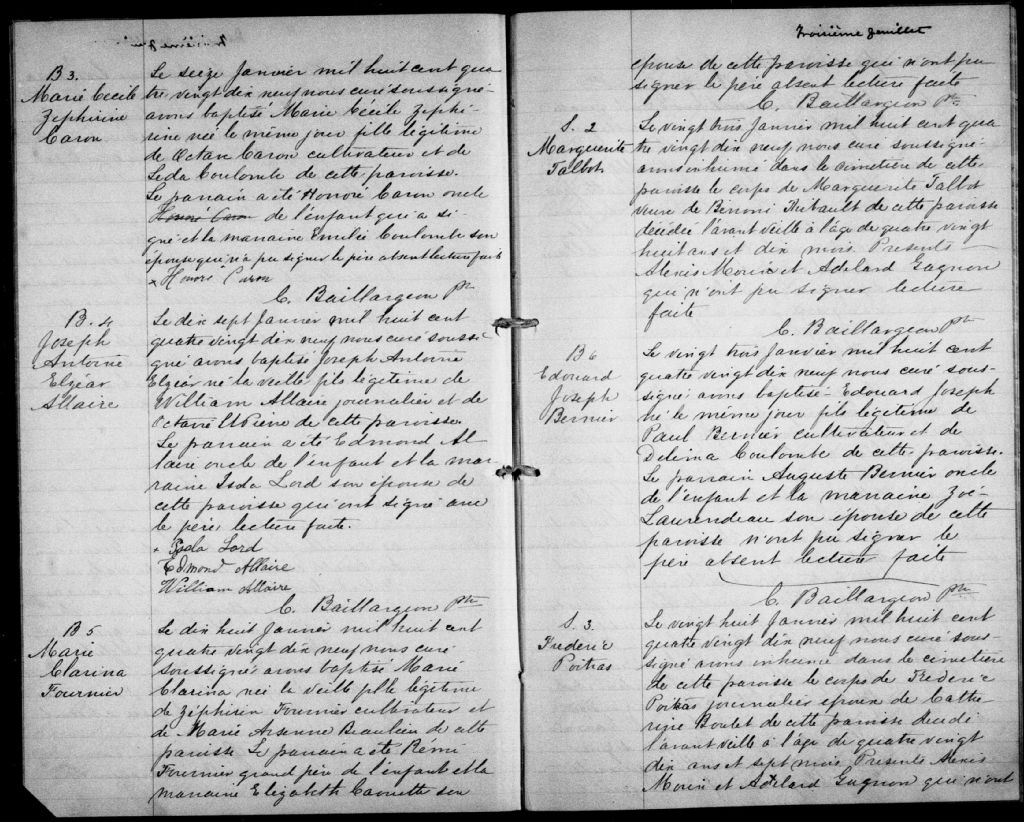 B 3.
Marie Cécile
Zéphirine
Caron
Le seize Janvier mil huit cent qua
tre vingt dix neuf nous curé soussigné
avons baptisé Marie Cécile Zéphi-
rine née le même jour fille légitime
de Octave Caron cultivateur et de
Léda Coulombe de cette paroisse.
Le parrain a été Honoré Caron oncle
Honoré Caron de l'enfant qui a si-
gné et la marraine Emilie Coulombe son
épouse qui n'a pu signer le père absent lecture faite
x Honoré Caron
C. Baillargeon Ptre
B. 4
Joseph
Antoine
Elzéar
Allaire
Le dix sept Janvier mil huit cent
quatre vingt dix neuf nous curé soussi
gné avons baptisé Joseph Antoine
Elzéar né la veille fils légitime de
William Allaire journalier et de
Octavie de cette paroisse.
Le parrain a été Edmond Al
laire oncle de l'enfant et la mar-
raine Isda Lord son épouse de
cette paroisse qui ont signé avec
le père lecture faite.
x Isda Lord
Edmond Allaire
William Allaire
C. Baillargeon Ptre
B 5
Marie
Clarina
Fournier
Le dix huit Janvier mil huit cent
quatre vingt dix neuf nous curé
soussigné avons baptisé Marie
Clarina née la veille fille légitime
de Zéphirin Fournier cultivateur et
de Marie Arsenne Beaulieu de cette
paroisse Le parrain a été Rémi
Fournier grand père de l'enfant et la
marraine Elizabeth Caouette son
Troisième feuillet
épouse de cette paroisse qui n'ont pu
signer le père absent lecture faite
C. Baillargeon Ptre
S. 2
Marguerite
Talbot
Le vingt trois Janvier mil huit cent qua
tre vingt dix neuf nous curé soussigné
avons inhumé dans le cimetière de cette
paroisse le corps de Marguerite Talbot
veuve de Benoni Thibault de cette paroisse
décédée l'avant veille à l'âge de quatre vingt
huit ans et dix mois Présents
Alexis Morin et Adélard Gagnon
qui n'ont pu signer lecture
faite
C. Baillargeon Ptre
B 6
Edouard
Joseph
Bernier
Le vingt trois Janvier mil huit cent
quatre vingt dix neuf nous curé sous-
signé avons baptisé Edouard Joseph
né le même jour fils légitime de
Paul Bernier cultivateur et de
Delvina Coulombe de cette paroisse.
Le parrain Auguste Bernier oncle
de l'enfant et la marraine Zoé
Laurendeau son épouse de cette
paroisse n'ont pu signer le
père absent lecture faite
C. Baillargeon Ptre
S. 3.
Frédéric
Poitras
Le vingt huit Janvier mil huit cent
quatre vingt dix neuf nous curé sous-
signé avons inhumé dans le cimetière
de cette paroisse le corps de Frédéric
Poitras journalier époux de Cathe-
rine Boulet de cette paroisse décédé
l'avant veille à l'âge de quatre vingt
dix ans et sept mois Présents Alexis
Morin et Adélard Gagnon qui n'ont